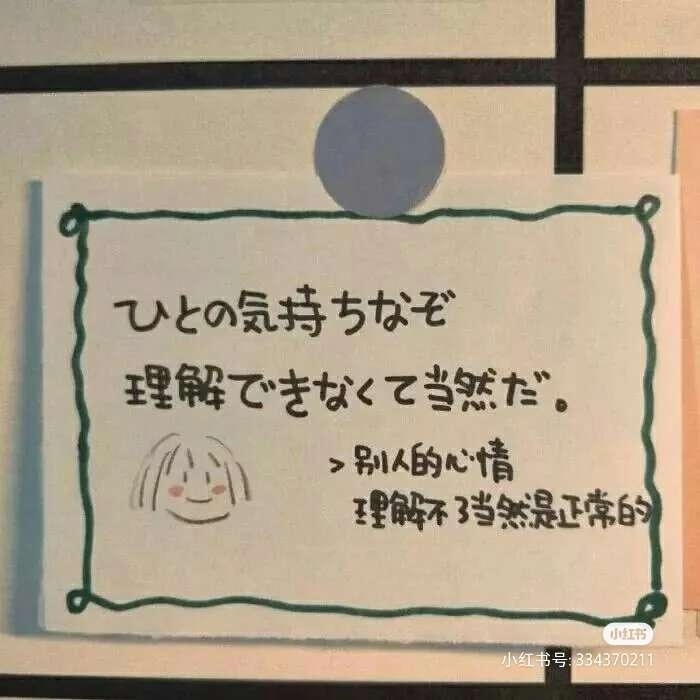 ひとの気持ちなぞ
理解できなくて当然だ。
>别人的心情
理解不了当然是正常的
小红书
小红书号:334370211